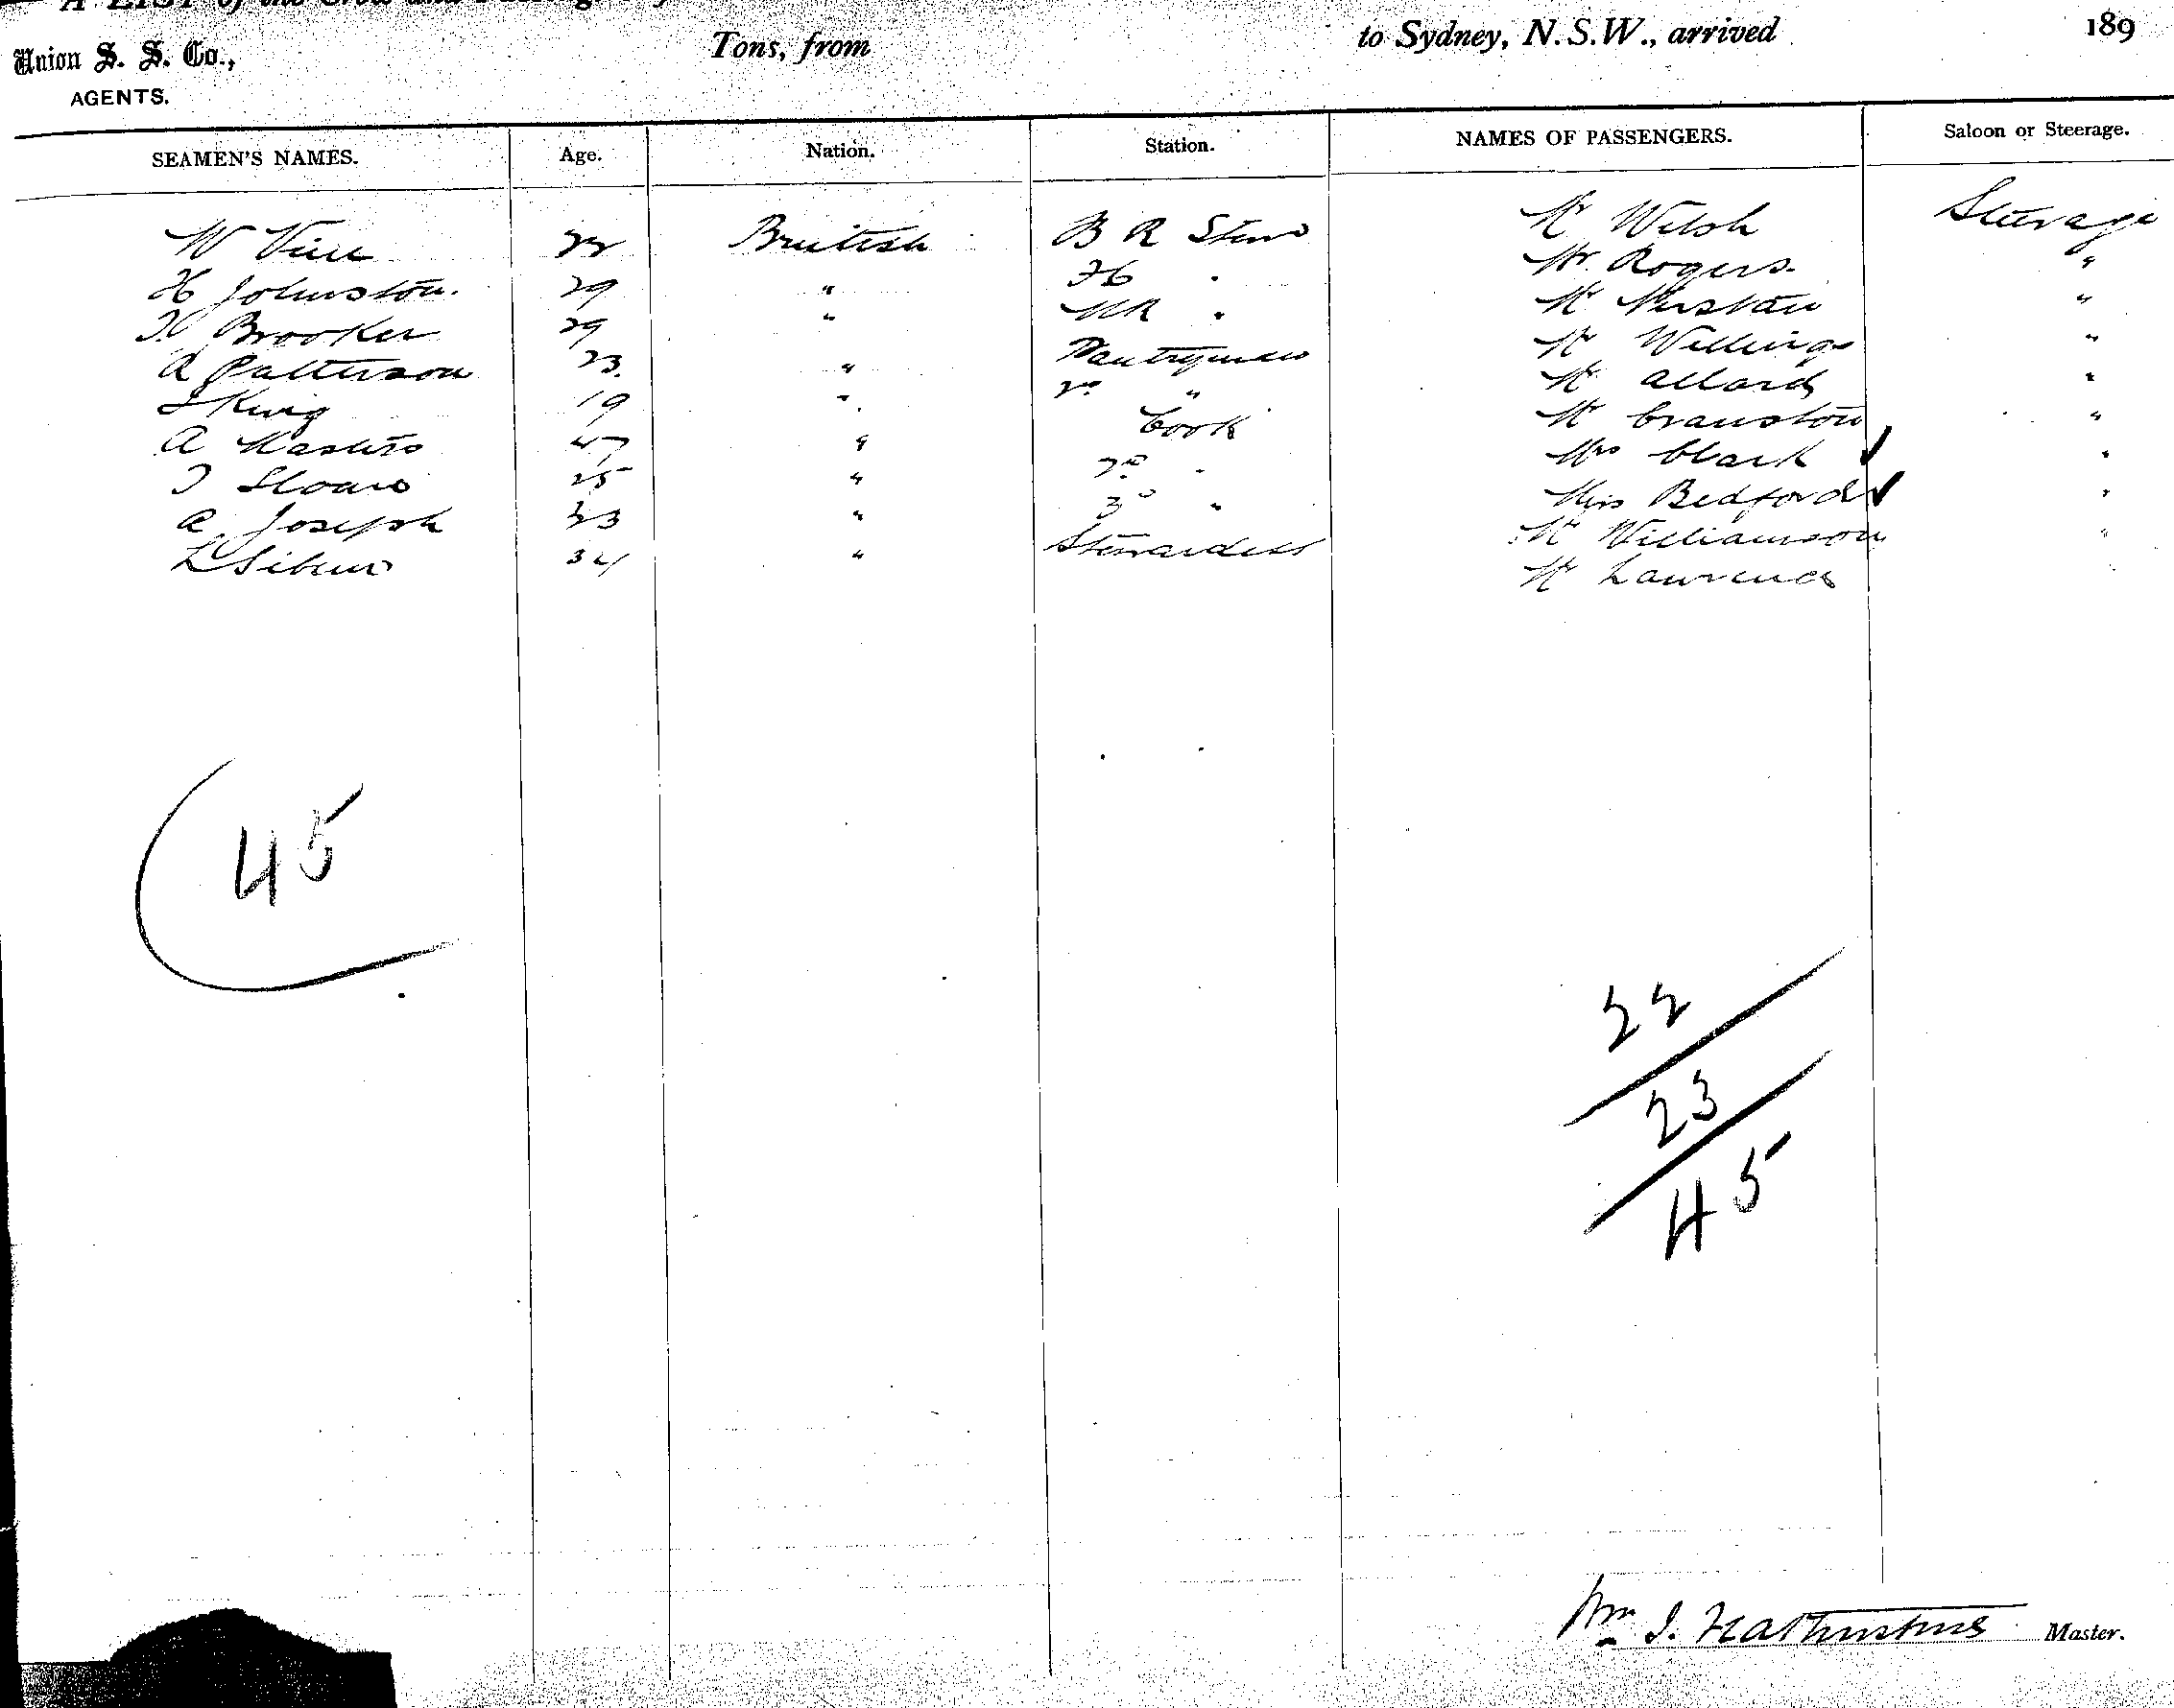 A LIST of the Crew and Passengers
Union S. S. Co., Tons, from to Sydney, N.S.W., arrived 189
AGENTS.
SEAMEN'S NAMES. Age. Nation. Station. NAMES OF PASSENGERS. Saloon or Steerage.
W 22 British B R Stew Mr Welsh Steerage
H Johnston. 29 " " Mr. Rogers. "
Brooker 29 " " Mr "
A Patterson 23. " Pantryman Mr Willings "
King 19 " 2nd " Mr Allard "
A Masters 47 " Cook Mr Cranston "
T Sloane 25 " 2nd " Mrs Clark ✓ "
A Joseph 23 " 3rd " Miss Bedford ✓ "
L 34 " Stewardess Mr Williamson "
Mr Lawrence
45
22
23
45
Wm J. Master.